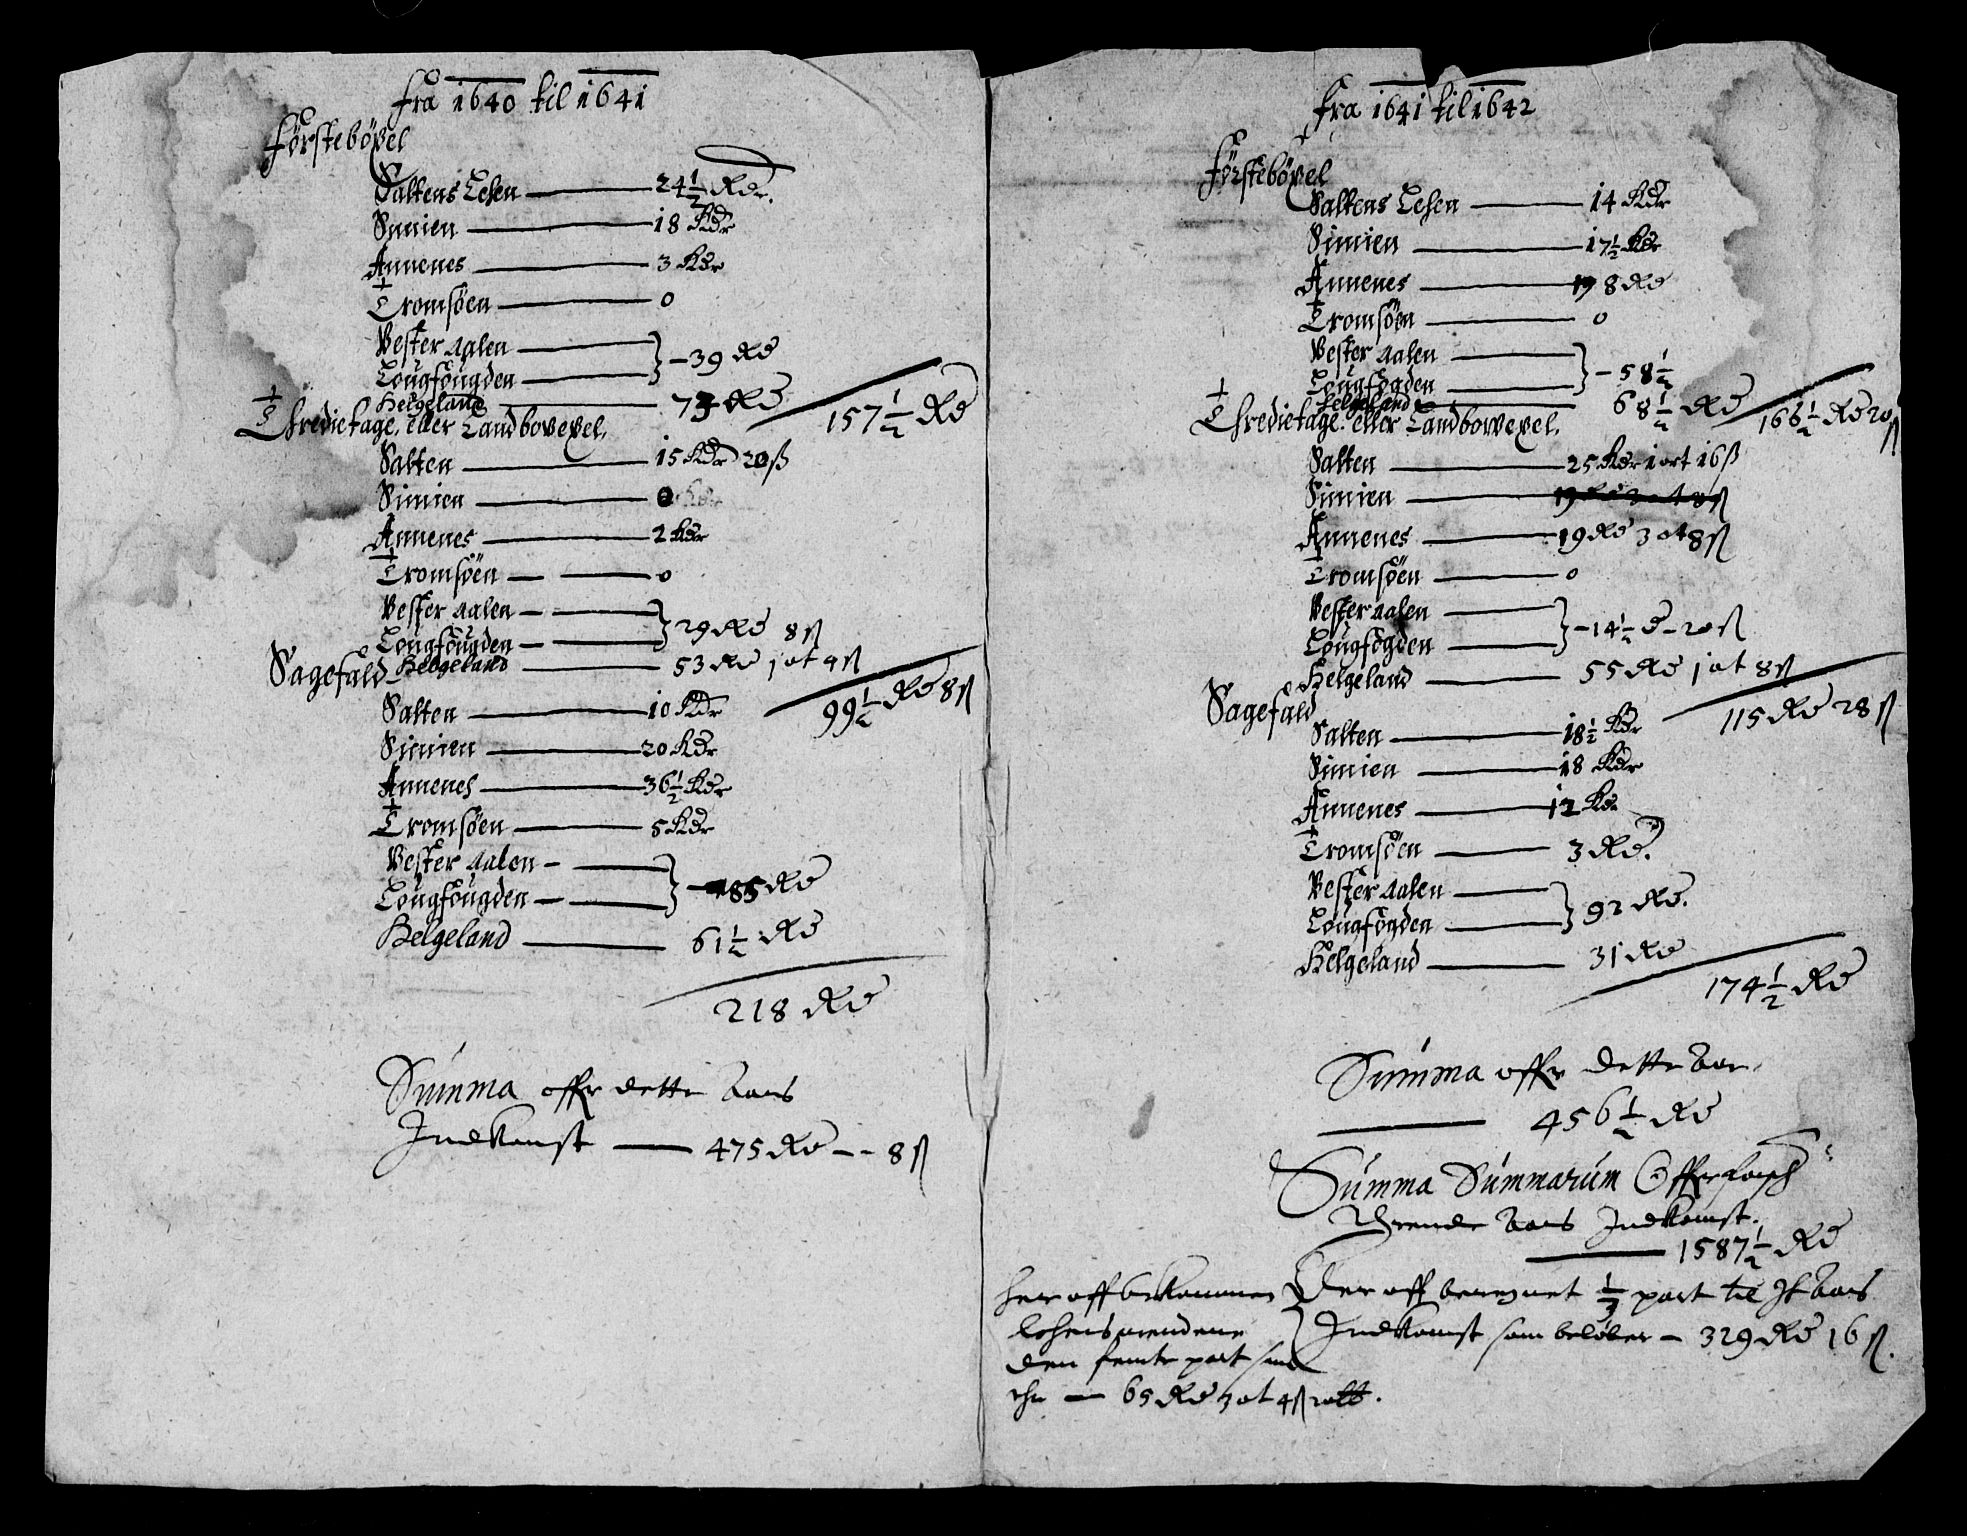 fra 1640 til 1641
Försteböxel
Saltens Lehen — 24½ Rdr.
Sinnien — 18 Rdr
Annenes — 3 Rdr
Tromsöen — 0
Vester Aalen —
Lougfougden — } — 39 Rd
Helgeland — 73 Rd
157½ Rd
Thredietage, eller Landbovexel,
Salten — 15 Rdr 20 ß
Sinnien — 0
Annenes — 2 Rdr
Tromsöen — 0
Vester Aalen —
Lougfougden — } 29 Rd 8 ß
Helgeland — 53 Rd 1 ot 4 ß
99½ Rd 8 ß
Sagefald
Salten — 10 Rdr
Sinnien — 20 Rdr
Annenes — 36½ Rdr
Tromsöen — 5 Rdr
Vester Aalen —
Lougfougden — } — 85 Rd
Helgeland — 61½ Rd
218 Rd
Summa offr dette Aars
Indkomst — 475 Rd — 8 ß
fra 1641 til 1642
Försteböxel
Saltens Lehen — 14 Rdr
Sinnien — 17½ Rdr
Annenes — 8 Rd
Tromsöen — 0
Vester Aalen —
Lougfogden — } — 58½
Helgeland — 68½ Rd
166½ Rd 20 ß
Thredietage. eller Landbovvexel.
Salten — 25 Rdr 1 ort 16 ß
Sinnien — 19 Rd 3 ot 8 ß
Annenes — 19 Rd 3 ot 8 ß
Tromsöen — 0
Vester Aalen —
Lougfogden — } — 14½ d — 20 ß
Helgeland — 55 Rd 1 ot 8 ß
115 Rd 28 ß
Sagefald
Salten — 18½ Rdr
Sinnien — 18 Rdr
Annenes — 12 Rdr
Tromsöen — 3 Rd.
Vester Aalen —
Lougfogden — } 92 Rd.
Helgeland — 31 Rd
174½ Rd
Summa offr dette Aar
— 456½ Rd
Summa Summarum Offr
Aars Indkomst.
— 1587½ Rd
Der off beregnet ⅓ part til It Aars
Indkomst som beløber — 329 Rd 16 ß.
her off bekommer
lehensmendene
den femte part som
ehr — 65 Rd 3 ot 4 ß